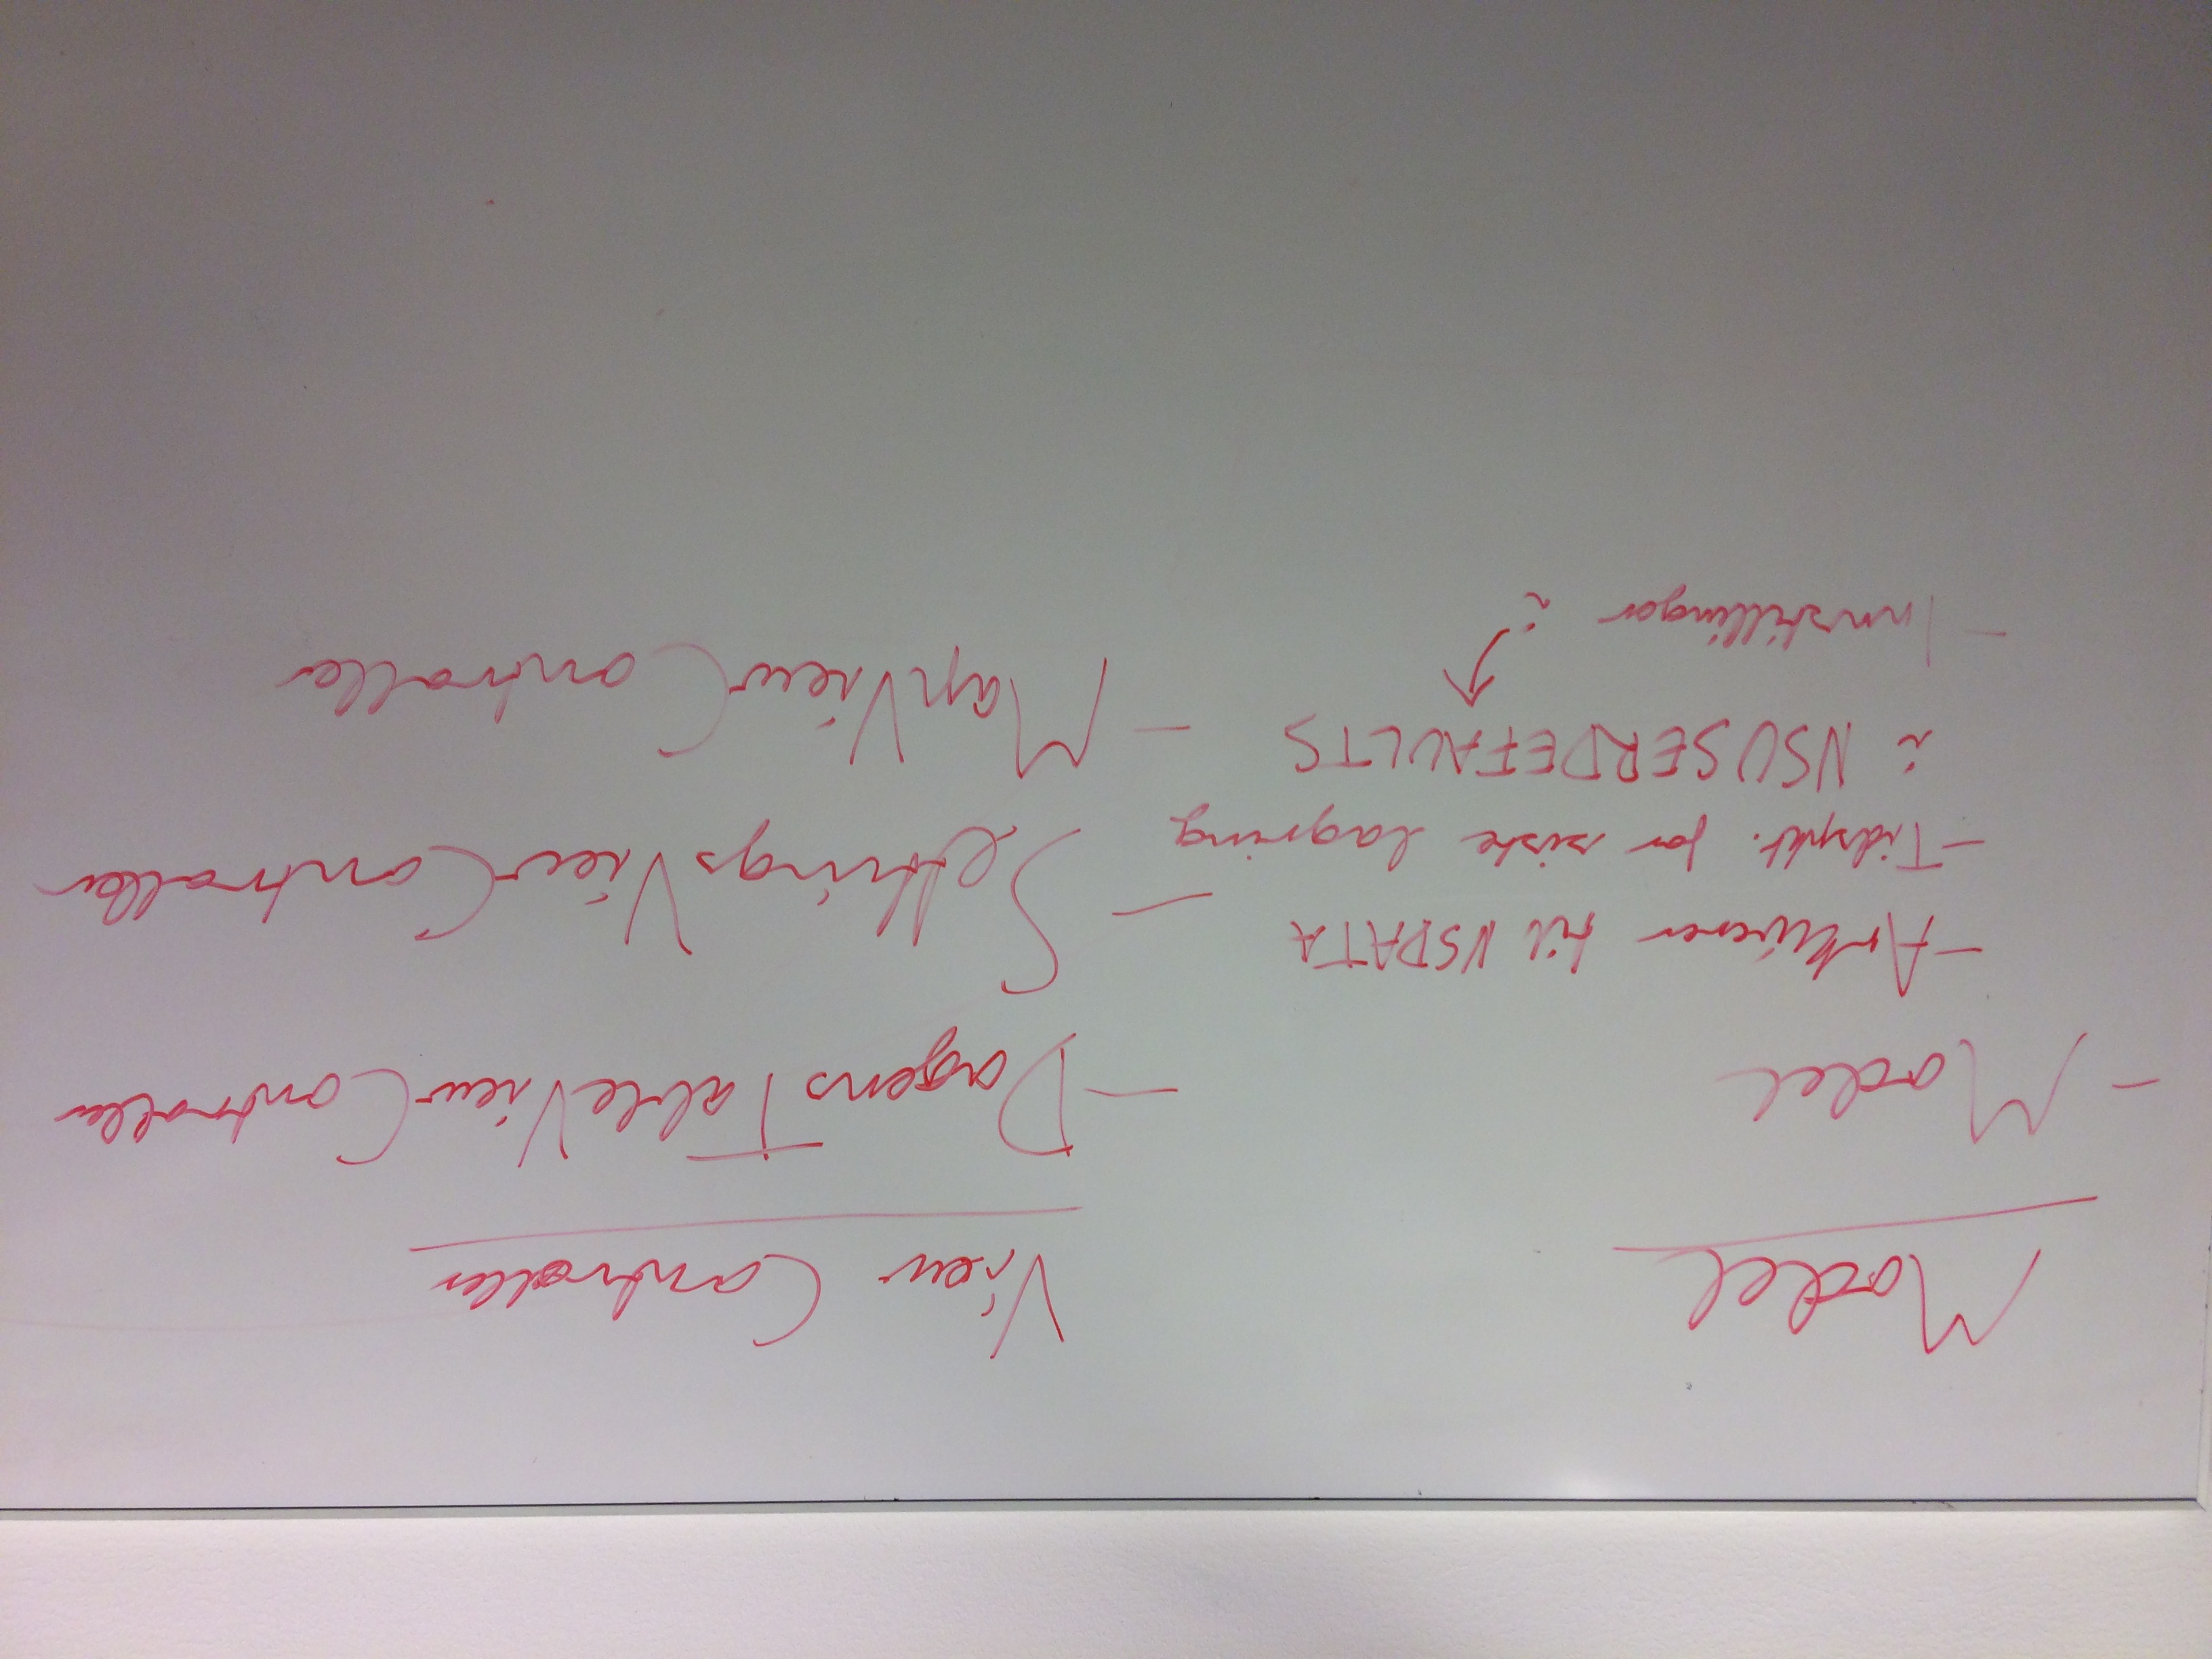 Model
- Model
- Arkiverer til NSDATA
- Tidspkt. for siste lagring
i NSUSERDEFAULTS
- Innstillinger i ↗
View Controller
- DagensTableViewController
- SettingsViewController
- MapViewController